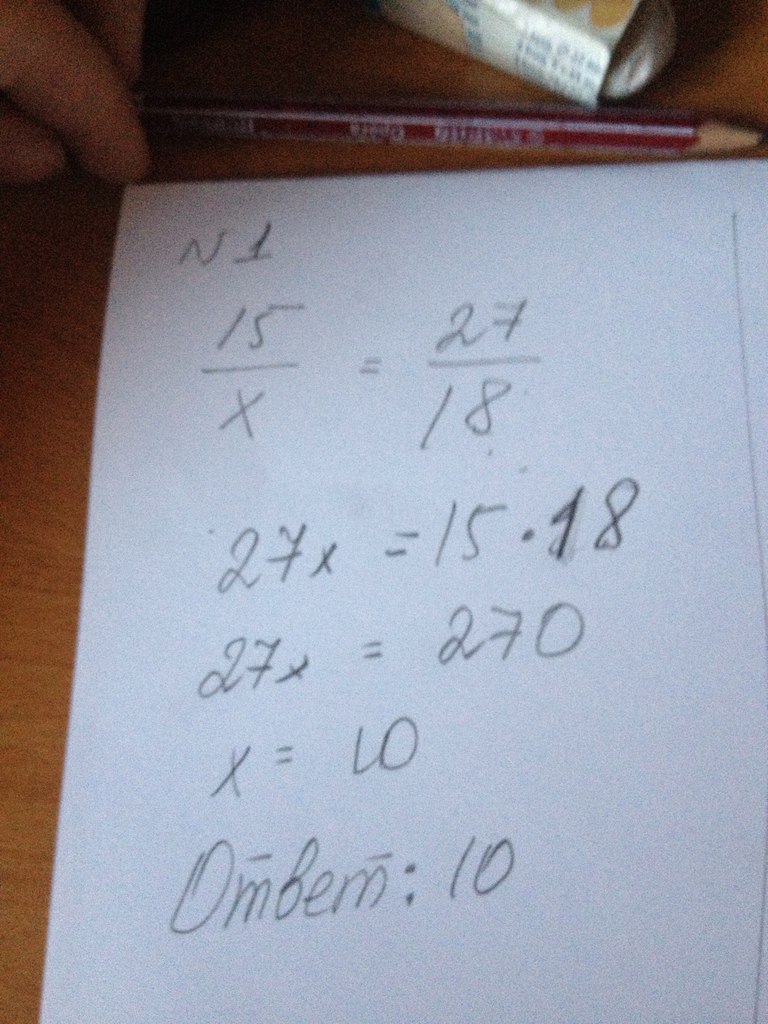 N 1
15/x = 27/18
27x = 15 · 18
27x = 270
x = 10
Ответ: 10